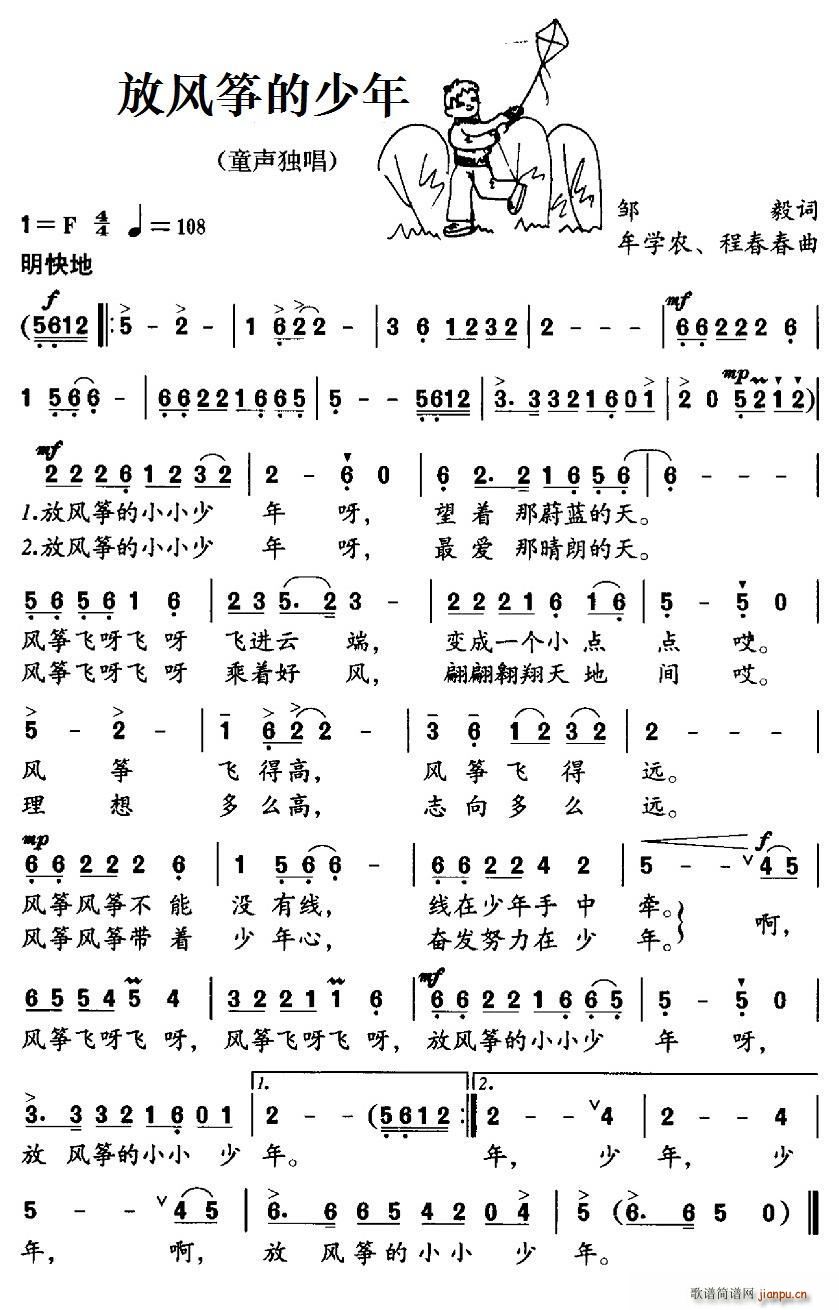 放风筝的少年
（童声独唱）
1=F 4/4 ♩=108
邹 毅词
牟学农、程春春曲
明快地
f
(5612 ‖: 5 - 2 - | 1 622 - | 3 6 1232 | 2 - - - | mf 662222 6 |
1 566 - | 662216 65 | 5 - - 5612 | 3. 3321601 | 2 0 mp 5212) |
mf
2226 1232 | 2 - 6 0 | 6 2. 21656 | 6 - - - |
1.放风筝的小小少 年 呀， 望 着 那蔚蓝的天。
2.放风筝的小小少 年 呀， 最 爱 那晴朗的天。
5656 1 6 | 235. 2 3 - | 2221 6 16 | 5 - 5 0 |
风筝飞呀飞 呀 飞进云 端， 变成一个小 点 点 哎。
风筝飞呀飞 呀 乘着好 风， 翩翩翱翔天 地 间 哎。
5 - 2 - | 1 622 - | 3 6 12 32 | 2 - - - |
风 筝 飞得高， 风 筝 飞 得 远。
理 想 多么高， 志 向 多 么 远。
mp
66222 6 | 1 566 - | 6622 4 2 | 5 - - ∨ f 45 |
风筝风筝不 能 没 有线， 线在少年手 中 牵。 啊，
风筝风筝带 着 少 年心， 奋发努力在 少 年。
6554 5 4 | 3221 1 6 | mf 66221665 | 5 - 5 0 |
风筝飞呀飞 呀， 风筝飞呀飞 呀， 放风筝的小小少 年 呀，
3. 3321601 | 1. 2 - - (5612 :‖ 2. 2 - - ∨4 | 2 - - 4 |
放 风筝的小小 少 年。 年， 少 年， 少
5 - - ∨ 45 | 6. 6654204 | 5 (6. 6 5 0) ‖
年， 啊， 放 风筝的小小 少 年。
歌谱简谱网
jianpu.cn